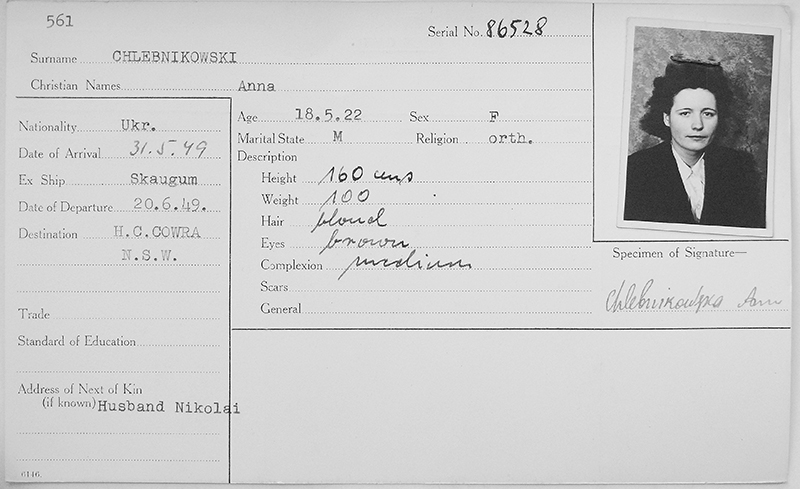 561
Serial No. 86528
Surname CHLEBNIKOWSKI
Christian Names Anna
Nationality Ukr.
Date of Arrival 31.5.49
Ex Ship Skaugum
Date of Departure 20.6.49.
Destination H.C.COWRA
N.S.W.
Trade
Standard of Education
Address of Next of Kin
(if known) Husband Nikolai
6146.
Age 18.5.22 Sex F
Marital State M Religion orth.
Description
Height 160 cms
Weight 100
Hair blond
Eyes brown
Complexion medium
Scars
General
Specimen of Signature—
Chlebnikowska Ann